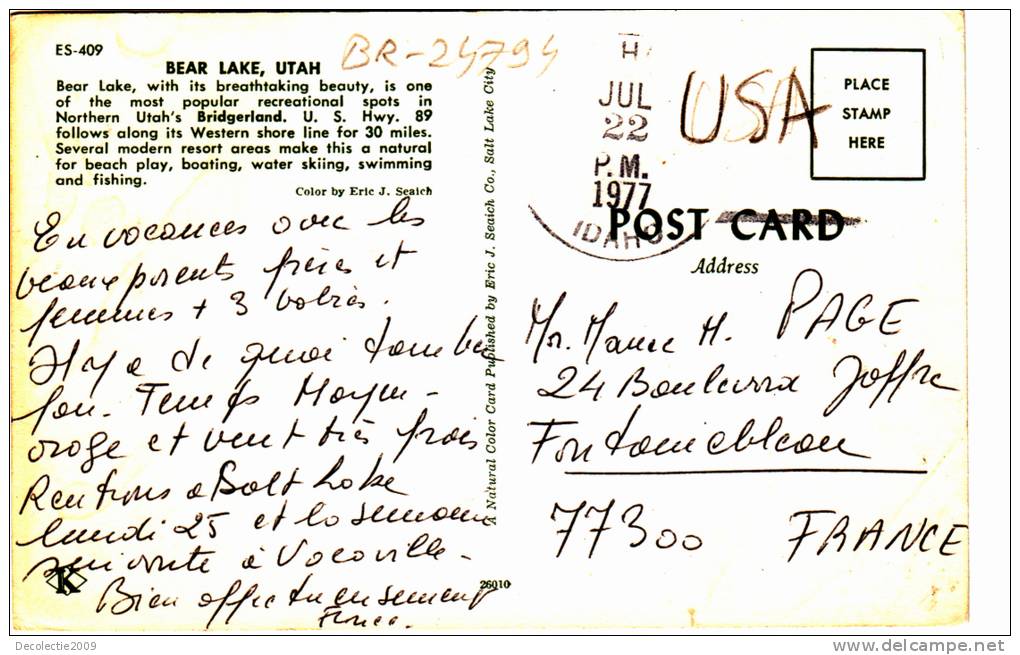 ES-409
BEAR LAKE, UTAH
Bear Lake, with its breathtaking beauty, is one
of the most popular recreational spots in
Northern Utah's Bridgerland. U. S. Hwy. 89
follows along its Western shore line for 30 miles.
Several modern resort areas make this a natural
for beach play, boating, water skiing, swimming
and fishing.
Color by Eric J. Seaich
BR-24794
En vacances avec les
beaux parents frères et
femmes + 3 bébés.
Il y a de quoi tomber
fou. Temps Moyen -
orage et vent très frais
Rentrons à Salt Lake
lundi 25 et la semaine
suivante à Vacaville -
Bien affectueusement
K
26010
A Natural Color Card Published by Eric J. Seaich Co., Salt Lake City
JUL
22
P.M.
1977
IDAHO
USA
PLACE
STAMP
HERE
POST CARD
Address
Mr. H. PAGE
24 Boulevard Joffre
Fontainebleau
77300 FRANCE
Decolectie2009
www.delcampe.net